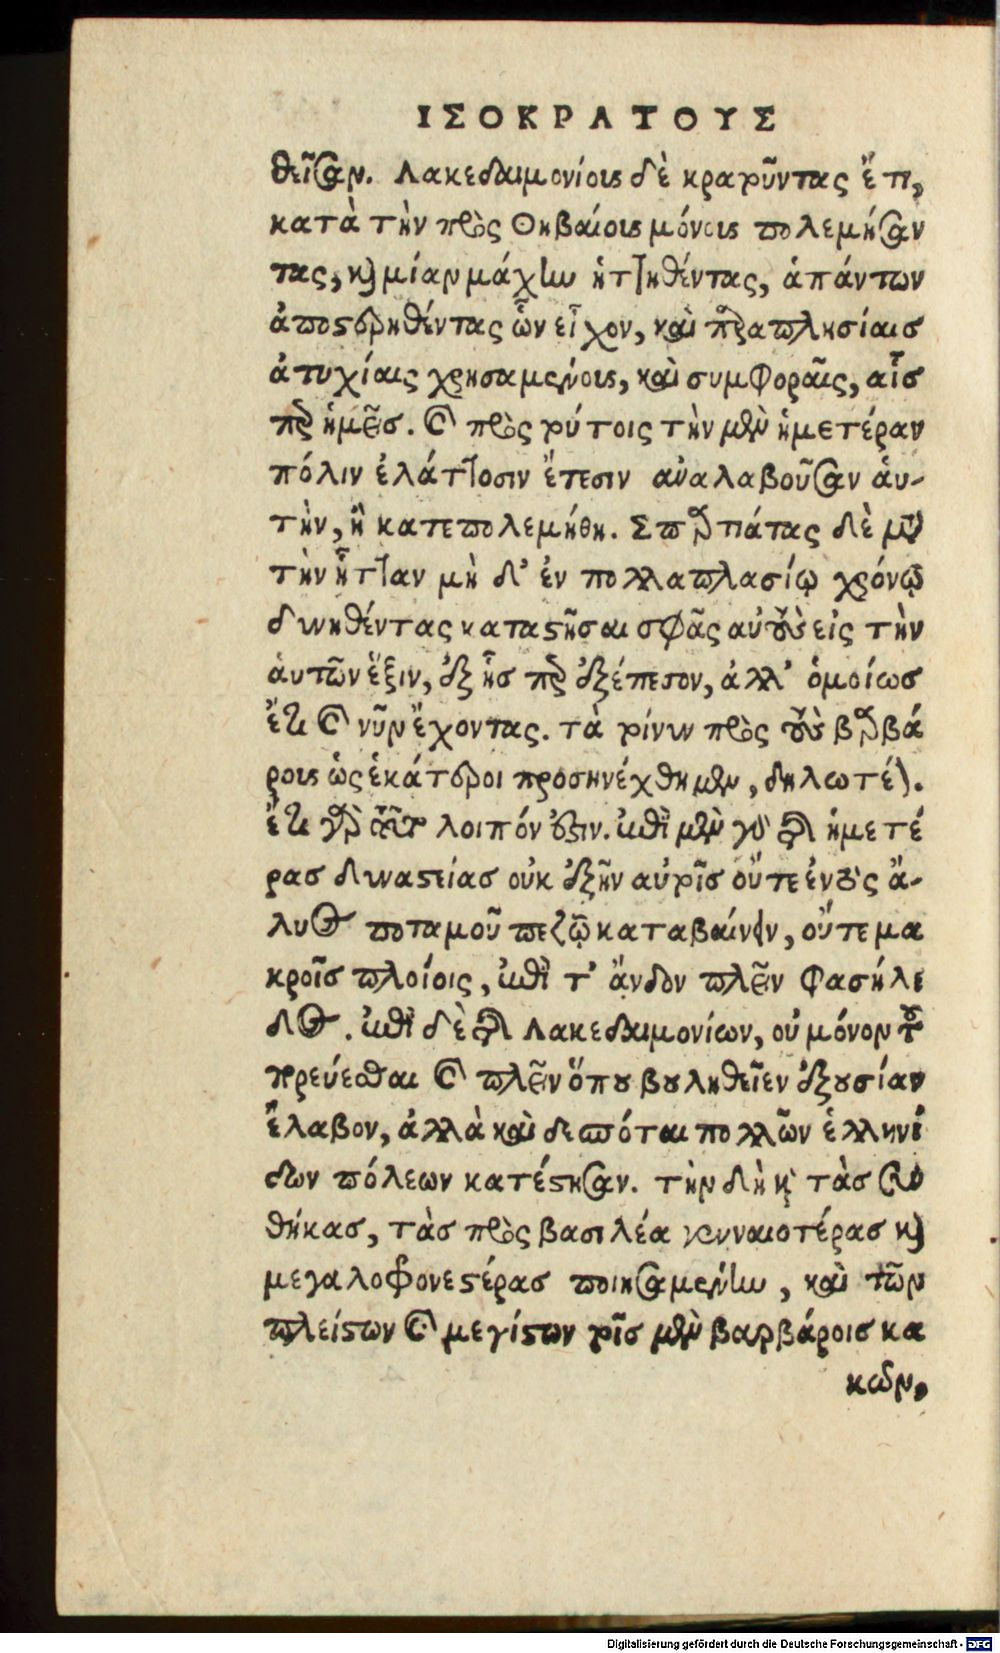 ΙΣΟΚΡΑΤΟΥΣ
θεῖσαν. Λακεδαιμονίους δὲ κρατοῦντας ἔτι,
κατὰ τὴν πρὸς Θηβαίους μόνους πολεμήσαν
τας, καὶ μίαν μάχην ἡττηθέντας, ἁπάντων
ἀποστερηθέντας ὧν εἶχον, καὶ παραπλησίαις
ἀτυχίαις χρησαμένους, καὶ συμφοραῖς, αἷσ
περ ἡμεῖς. καὶ πρὸς τούτοις τὴν μὲν ἡμετέραν
πόλιν ἐλάττοσιν ἔτεσιν ἀναλαβοῦσαν αὑ-
τὴν, ἢ κατεπολεμήθη. Σπαρτιάτας δὲ μετὰ
τὴν ἧτταν μὴ δ' ἐν πολλαπλασίῳ χρόνῳ
δυνηθέντας καταστῆσαι σφᾶς αὐτοὺς εἰς τὴν
αὑτῶν ἕξιν, ἐξ ἧσ περ ἐξέπεσον, ἀλλ' ὁμοίως
ἔτι καὶ νῦν ἔχοντας. τὰ τοίνυν πρὸς τοὺς βαρβά
ρους ὡς ἑκάτεροι προσηνέχθημεν, δηλωτέον.
ἔτι γὰρ τοῦτο λοιπόν ἐστιν. ἐπὶ μὲν γὰρ τῆς ἡμετέ
ρας δυναστείας οὐκ ἐξῆν αὐτοῖς οὔτε ἐντὸς ἅ-
λυος ποταμοῦ πεζῷ καταβαίνειν, οὔτε μα
κροῖς πλοίοις, ἐπὶ τ' ἄνδον πλεῖν Φασήλι
δος. ἐπὶ δὲ τῆς Λακεδαιμονίων, οὐ μόνον τοῦ
πορεύεσθαι καὶ πλεῖν ὅπου βουληθεῖεν ἐξουσίαν
ἔλαβον, ἀλλὰ καὶ δεσπόται πολλῶν ἑλληνί
δων πόλεων κατέστησαν. τὴν δὴ καὶ τὰς συν
θήκας, τὰς πρὸς βασιλέα γενναιοτέρας καὶ
μεγαλοφρονεστέρας ποιησαμένην, καὶ τῶν
πλείστων καὶ μεγίστων τοῖς μὲν βαρβάροις κα
κῶν,
Digitalisierung gefördert durch die Deutsche Forschungsgemeinschaft - DFG